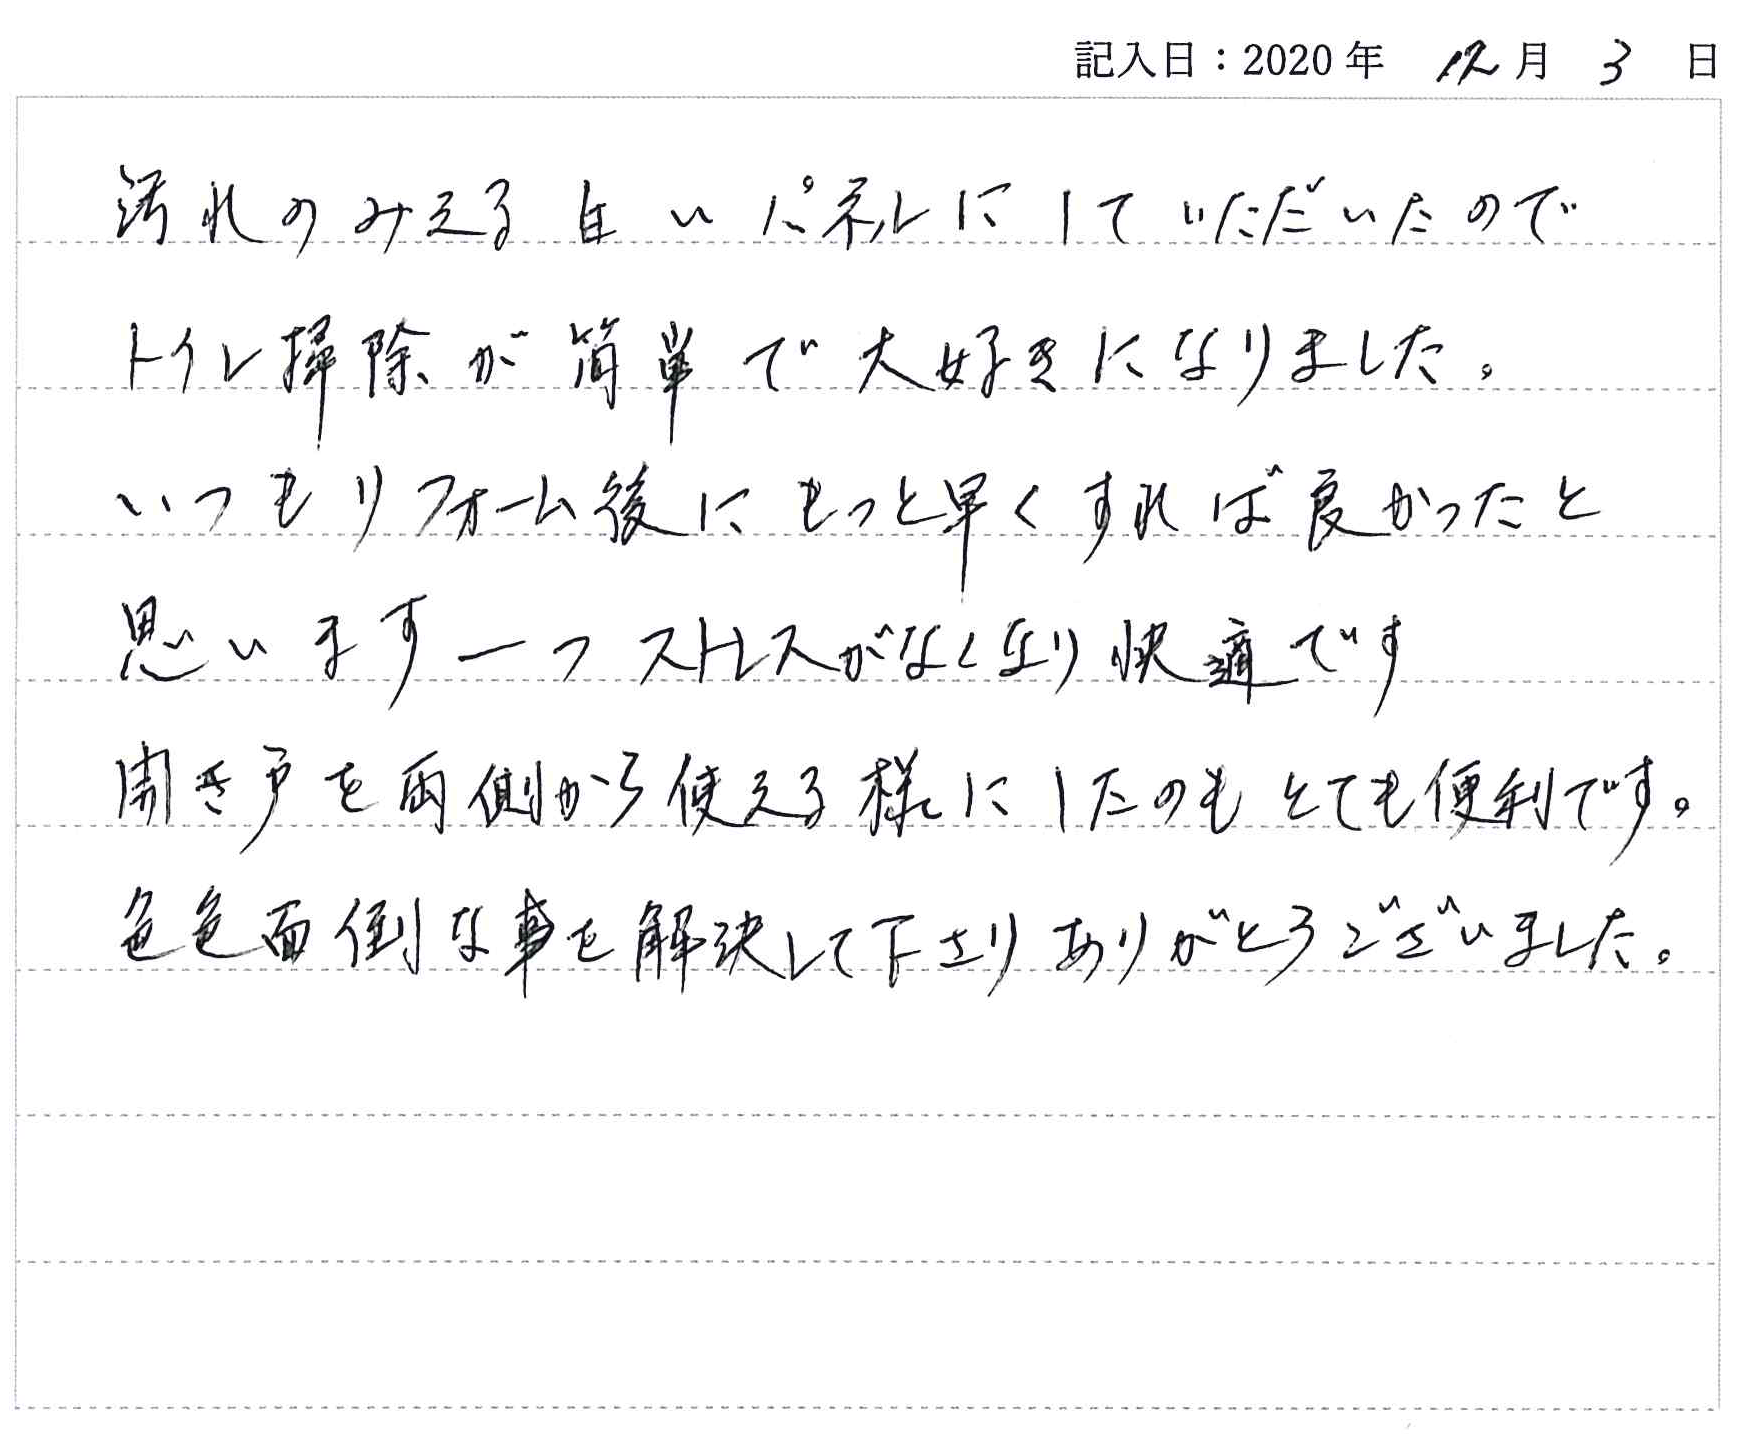 記入日：2020年 12月 3 日
汚れのみえる白いパネルにしていただいたので
トイレ掃除が簡単で大好きになりました。
いつもリフォーム後にもっと早くすれば良かったと
思います一つストレスがなくなり快適です
開き戸を両側から使える様にしたのもとても便利です。
色色面倒な事を解決して下さりありがとうございました。